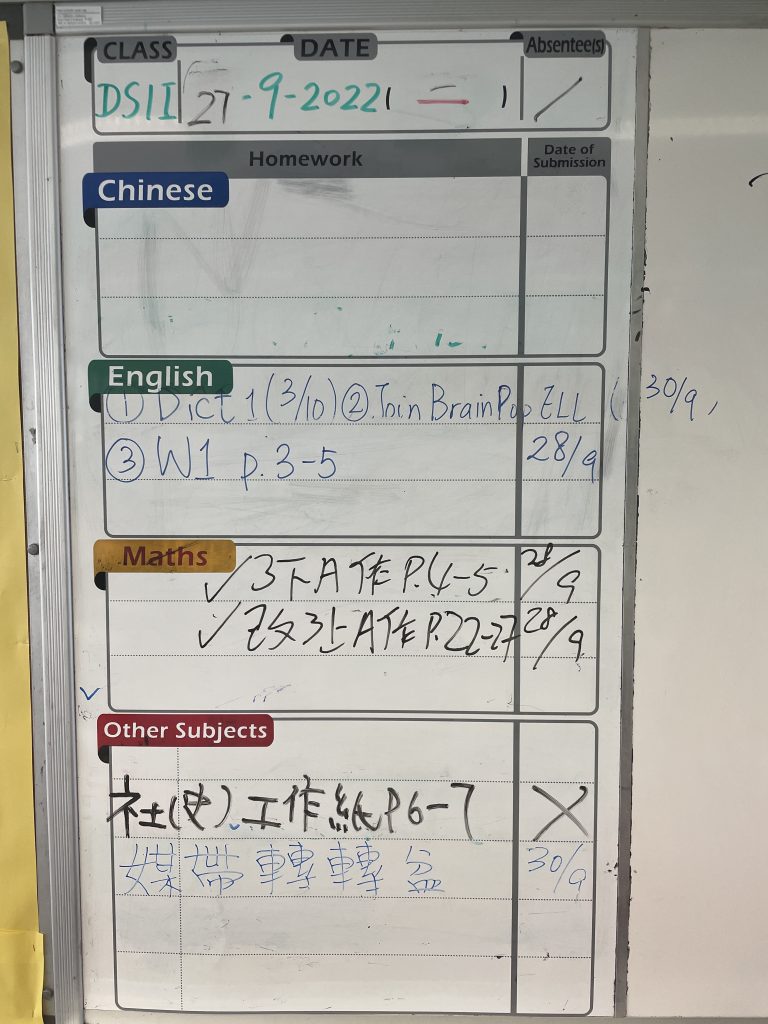 CLASS DATE Absentee(s)
DSII 27-9-2022 (二) /
Homework Date of Submission
Chinese
English
① Dict 1 (3/10) ② Join BrainPop ELL ( 30/9,
③ W1 p.3-5 28/9
Maths
✓3下A作 P.4-5 28/9
✓改3上A作 P.22-27 28/9
Other Subjects
社(史)工作紙P6-7 X
帶轉轉盆 30/9